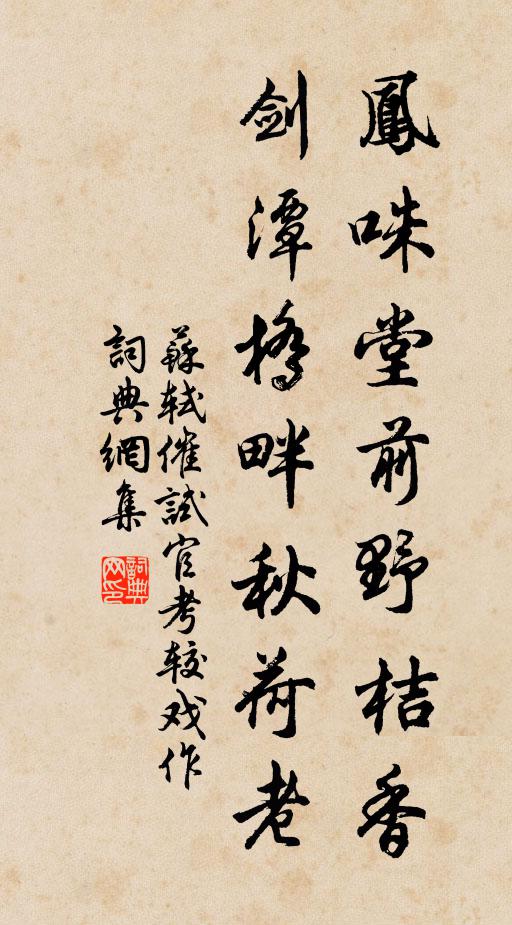 鳳咮堂前野桔香
劍潭橋畔秋荷老
蘇軾催試官考較戏作
詞典網集
詞典
网印